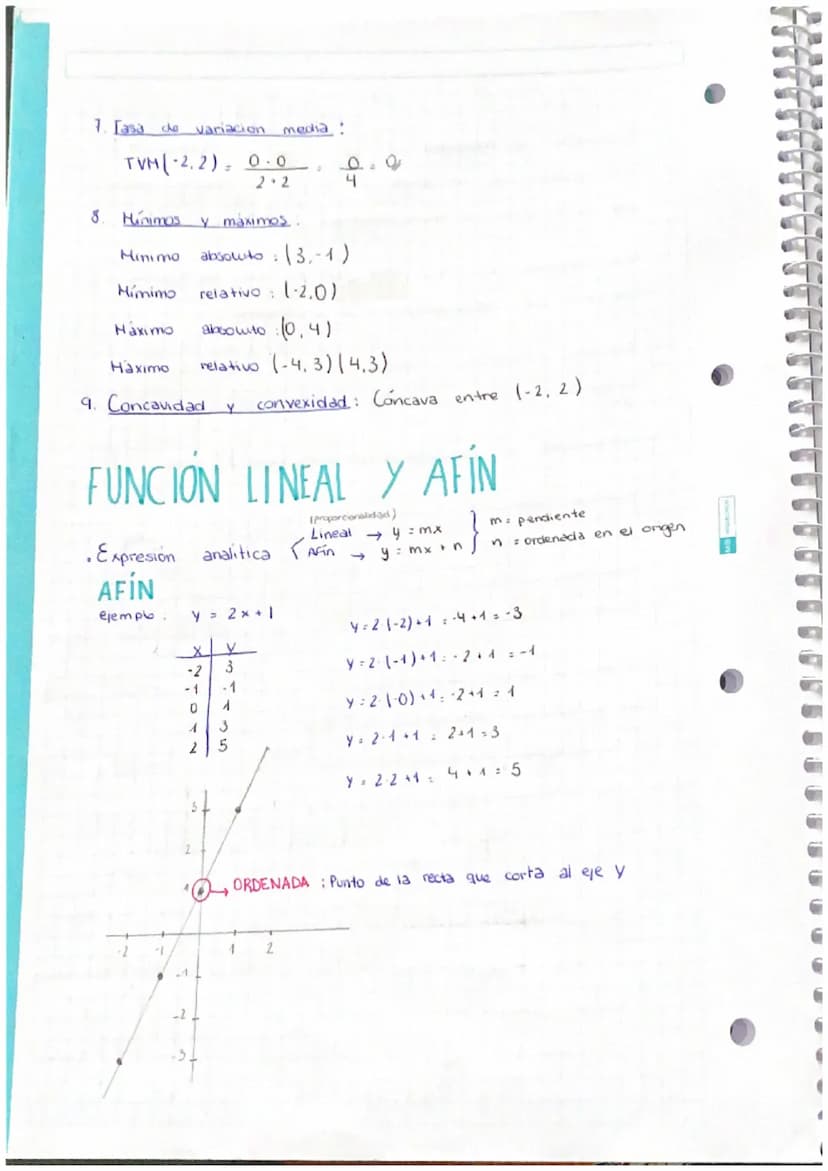 7. Tasa de variacion media :
TVM(-2,2) = 0-0 / 2+2 = 0/4 = 0
8. Mínimos y máximos :
Mínimo absoluto : (3,-1)
Mímimo relativo : (-2,0)
Máximo absoluto : (0,4)
Máximo relativo (-4,3)(4,3)
9. Concavidad y convexidad : Cóncava entre (-2,2)
FUNCIÓN LINEAL Y AFÍN
(proporcionalidad)
. Expresión analítica { Lineal → y = mx } m = pendiente
Afín → y = mx + n n = ordenada en el origen
AFÍN
ejemplo. y = 2x+1
x | y
-2 | 3
-1 | -1
0 | 1
1 | 3
2 | 5
y = 2(-2)+1 = -4+1 = -3
y = 2·(-1)+1 = -2+1 = -1
y = 2·(-0)+1 = -2+1 = 1
y = 2·1+1 = 2+1 = 3
y = 2·2+1 = 4+1 = 5
3
2
1 → ORDENADA : Punto de la recta que corta al eje y
-2 -1 1 2
-1
-2
-3